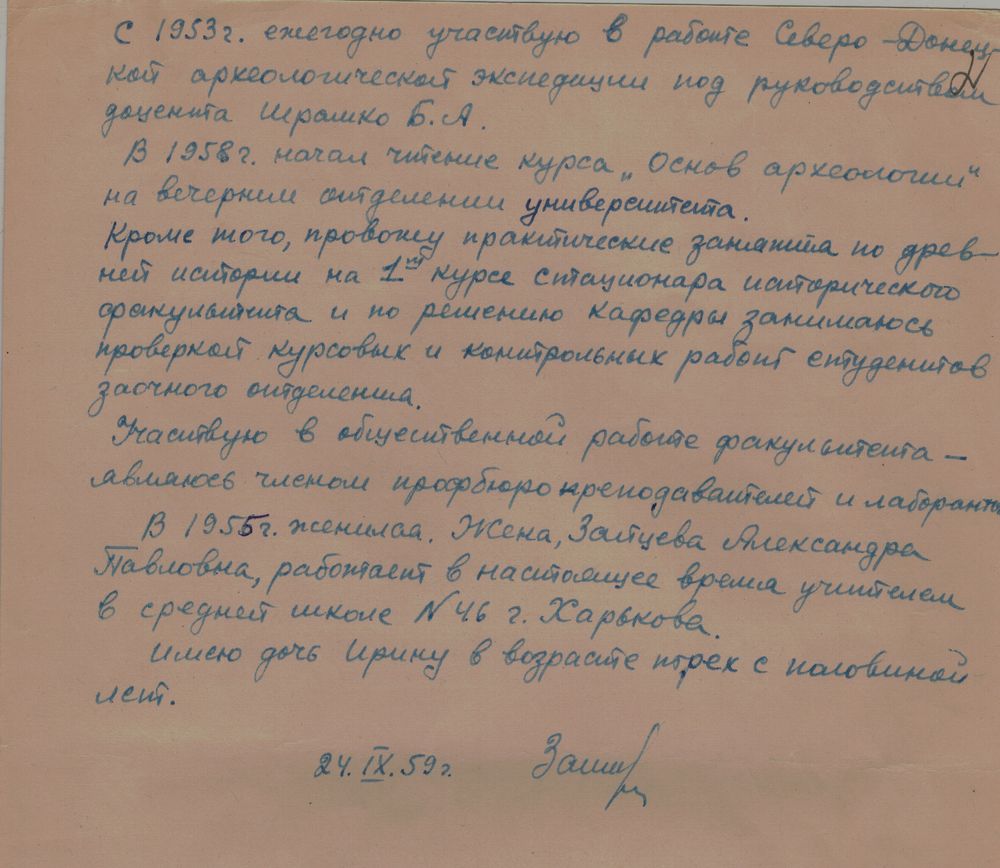 С 1953г. ежегодно участвую в работе Северо-Донец-
кой археологической экспедиции под руководством
доцента Шрамко Б.А.
В 1958г. начал чтение курса „Основ археологии"
на вечернем отделении университета.
Кроме того, провожу практические занятия по древ-
ней истории на 1ом курсе стационара исторического
факультета и по решению кафедры занимаюсь
проверкой курсовых и контрольных работ студентов
заочного отделения.
Участвую в общественной работе факультета —
являюсь членом профбюро преподавателей и лаборантов
В 1955г. женился. Жена, Зайцева Александра
Павловна, работает в настоящее время учителем
в средней школе N 46 г. Харькова.
Имею дочь Ирину в возрасте трех с половиной
лет.
24.IX.59г.